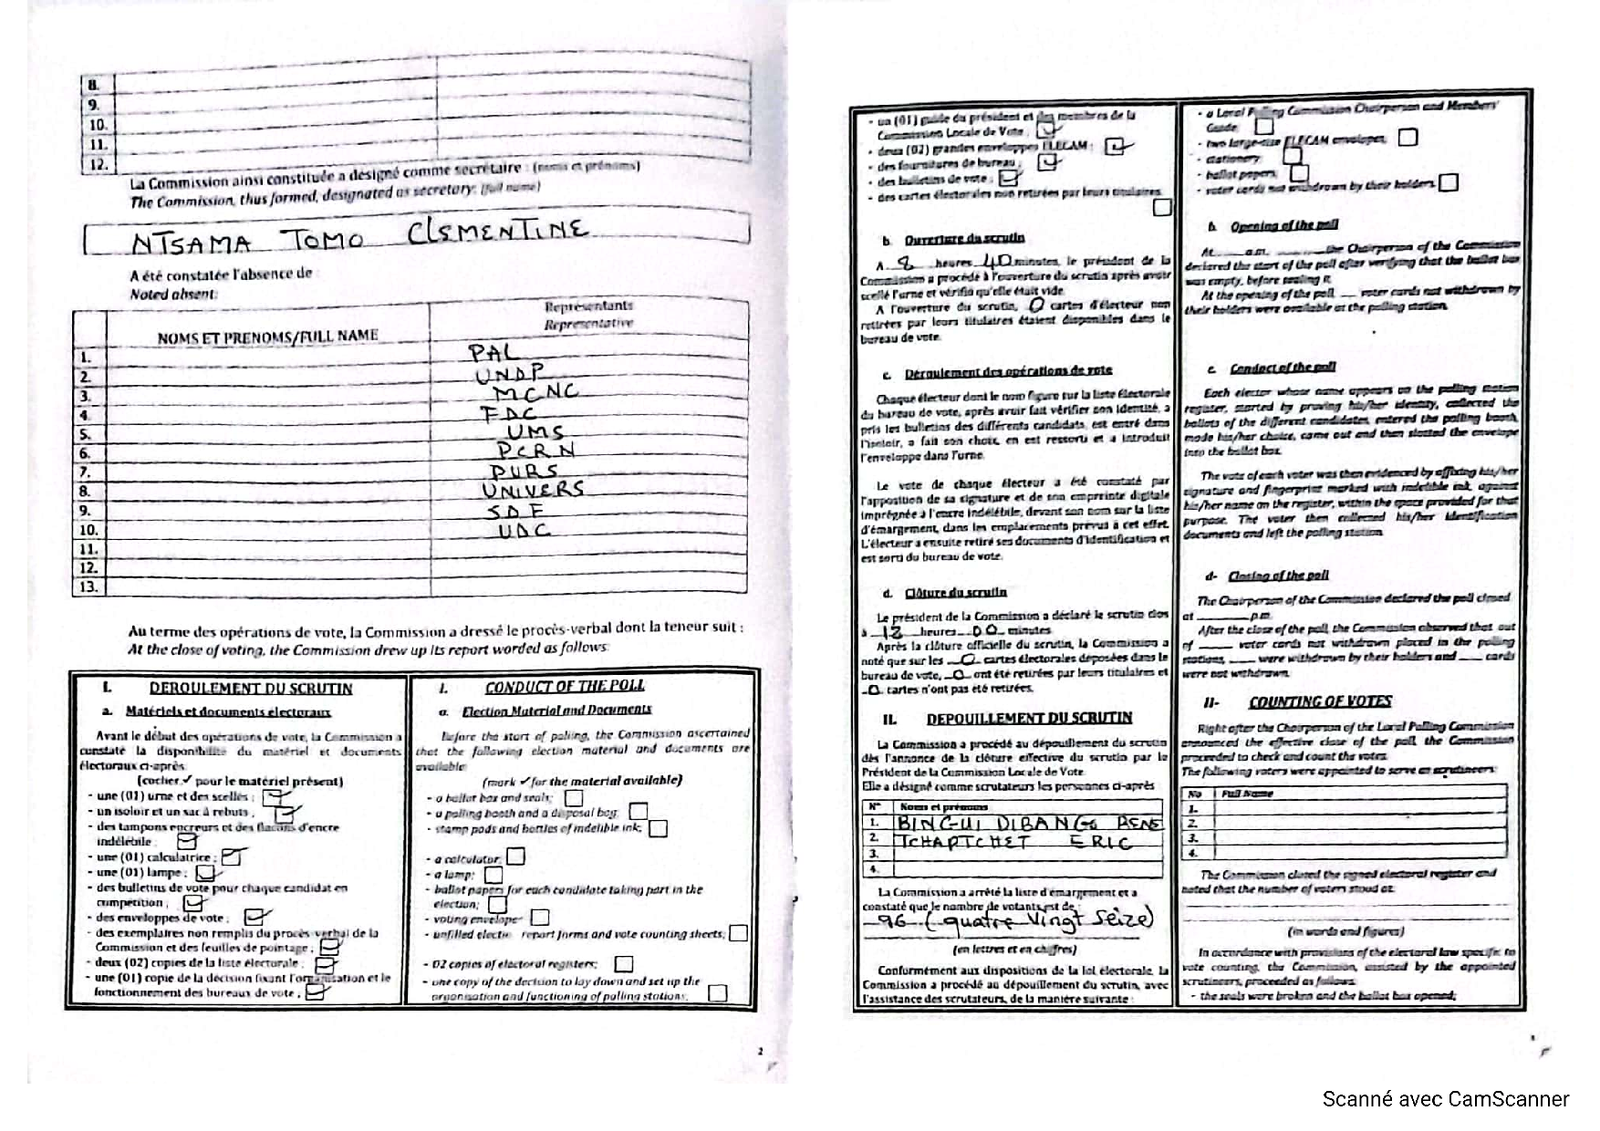 8.
9.
10.
11.
12.
La Commission ainsi constituée a désigné comme secrétaire : (noms et prénoms)
The Commission, thus formed, designated as secretary: (full name)
NTSAMA TOMO CLEMENTINE
A été constatée l'absence de :
Noted absent:
NOMS ET PRENOMS/FULL NAME
Représentants
Representative
1. PAL
2. UNDP
3. MCNC
4. FDC
5. UMS
6. PCRN
7. PURS
8. UNIVERS
9. SDF
10. UDC
11.
12.
13.
Au terme des opérations de vote, la Commission a dressé le procès-verbal dont la teneur suit :
At the close of voting, the Commission drew up its report worded as follows:
I. DEROULEMENT DU SCRUTIN
a. Matériels et documents electoraux
Avant le début des opérations de vote, la Commission a
constaté la disponibilité du matériel et documents
électoraux ci-après
(cocher ✓ pour le matériel présent)
- une (01) urne et des scellés ;
- un isoloir et un sac à rebuts ,
- des tampons encreurs et des flacons d'encre
indélébile ;
- une (01) calculatrice ;
- une (01) lampe ;
- des bulletins de vote pour chaque candidat en
compétition ;
- des enveloppes de vote ;
- des exemplaires non remplis du procès verbal de la
Commission et des feuilles de pointage ;
- deux (02) copies de la liste électorale ;
- une (01) copie de la décision fixant l'organisation et le
fonctionnement des bureaux de vote ,
I. CONDUCT OF THE POLL
a. Election Material and Documents
Before the start of polling, the Commission ascertained
that the following election material and documents are
available
(mark ✓ for the material available)
- a ballot box and seals;
- a polling booth and a disposal bag;
- stamp pads and bottles of indelible ink;
- a calculator;
- a lamp;
- ballot papers for each candidate taking part in the
election;
- voting envelope
- unfilled report forms and vote counting sheets;
- 02 copies of electoral registers;
- one copy of the decision to lay down and set up the
organisation and functioning of polling stations;
2
- un (01) guide du président et des membres de la
Commission Locale de Vote ;
- deux (02) grandes enveloppes ELECAM ;
- des fournitures de bureau ;
- des bulletins de vote ;
- des cartes électorales non retirées par leurs titulaires.
b. Ouverture du scrutin
A 8 heures 40 minutes, le président de la
Commission a procédé à l'ouverture du scrutin après avoir
scellé l'urne et vérifié qu'elle était vide.
A l'ouverture du scrutin, 0 cartes d'électeur non
retirées par leurs titulaires étaient disponibles dans le
bureau de vote.
c. Déroulement des opérations de vote
Chaque électeur dont le nom figure sur la liste électorale
du bureau de vote, après avoir fait vérifier son identité, a
pris les bulletins des différents candidats, est entré dans
l'isoloir, a fait son choix, en est ressorti et a introduit
l'enveloppe dans l'urne.
Le vote de chaque électeur a été constaté par
l'apposition de sa signature et de son empreinte digitale
imprégnée à l'encre indélébile, devant son nom sur la liste
d'émargement, dans les emplacements prévus à cet effet.
L'électeur a ensuite retiré ses documents d'identification et
est sorti du bureau de vote.
d. Clôture du scrutin
Le président de la Commission a déclaré le scrutin clos
à 18 heures 00 minutes
Après la clôture officielle du scrutin, la Commission a
noté que sur les 0 cartes électorales déposées dans le
bureau de vote, 0 ont été retirées par leurs titulaires et
0 cartes n'ont pas été retirées.
II. DEPOUILLEMENT DU SCRUTIN
La Commission a procédé au dépouillement du scrutin
dès l'annonce de la clôture effective du scrutin par le
Président de la Commission Locale de Vote
Elle a désigné comme scrutateurs les personnes ci-après
N° Noms et prénoms
1. BINGUI DIBANGO RENE
2. TCHAPTCHET ERIC
3.
4.
La Commission a arrêté la liste d'émargement et a
constaté que le nombre de votants est de :
96 (quatre Vingt Seize)
(en lettres et en chiffres)
Conformément aux dispositions de la loi électorale, la
Commission a procédé au dépouillement du scrutin, avec
l'assistance des scrutateurs, de la manière suivante :
- a Local Polling Commission Chairperson and Members'
Guide
- two large-size ELECAM envelopes,
- stationery;
- ballot papers;
- voter cards not withdrawn by their holders
b. Opening of the poll
At a.m. the Chairperson of the Commission
declared the start of the poll after verifying that the ballot box
was empty, before sealing it.
At the opening of the poll voter cards not withdrawn by
their holders were available at the polling station.
c. Conduct of the poll
Each elector whose name appears on the polling station
register, started by proving his/her identity, collected the
ballots of the different candidates, entered the polling booth,
made his/her choice, came out and then slotted the envelope
into the ballot box.
The vote of each voter was then evidenced by affixing his/her
signature and fingerprint marked with indelible ink, against
his/her name on the register, within the space provided for that
purpose. The voter then collected his/her identification
documents and left the polling station.
d- Closing of the poll
The Chairperson of the Commission declared the poll closed
at p.m.
After the close of the poll, the Commission observed that out
of voter cards not withdrawn placed in the polling
stations, were withdrawn by their holders and cards
were not withdrawn.
II- COUNTING OF VOTES
Right after the Chairperson of the Local Polling Commission
announced the effective close of the poll, the Commission
proceeded to check and count the votes.
The following voters were appointed to serve as scrutineers:
No Full Name
1.
2.
3.
4.
The Commission closed the signed electoral register and
noted that the number of voters stood at:
(in words and figures)
In accordance with provisions of the electoral law specific to
vote counting, the Commission, assisted by the appointed
scrutineers, proceeded as follows:
- the seals were broken and the ballot box opened;
Scanné avec CamScanner